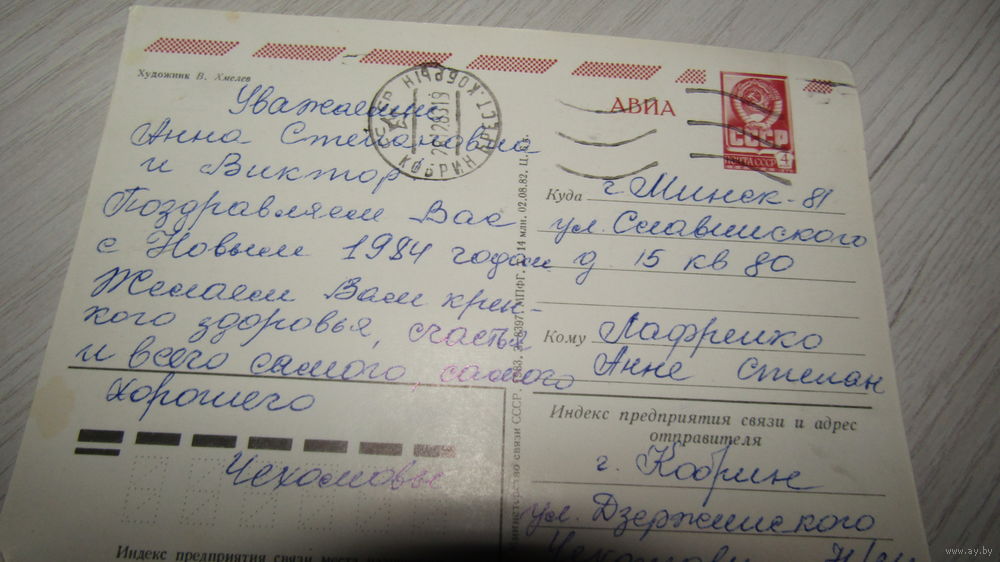 Художник В. Хмелев
Уважаемые
Анна Степановна
и Виктор,
Поздравляем Вас
с Новым 1984 годом
Желаем Вам креп-
кого здоровья, счастья
и всего самого, самого
Хорошего
Чехомовы
КОБРЫН
КОБРИН БРЕСТ.
АВИА
СССР
ПОЧТА СССР 4
Куда г. Минск-81
ул. Славинского
д 15 кв 80
Кому Лафренко
Анне Степан
Индекс предприятия связи и адрес
отправителя
г. Кобрин
ул. Дзержинского
Министерство связи СССР. 1983. МПФГ. 14 млн. 02.08.82. Ц.
Индекс предприятия связи места
www.ay.by